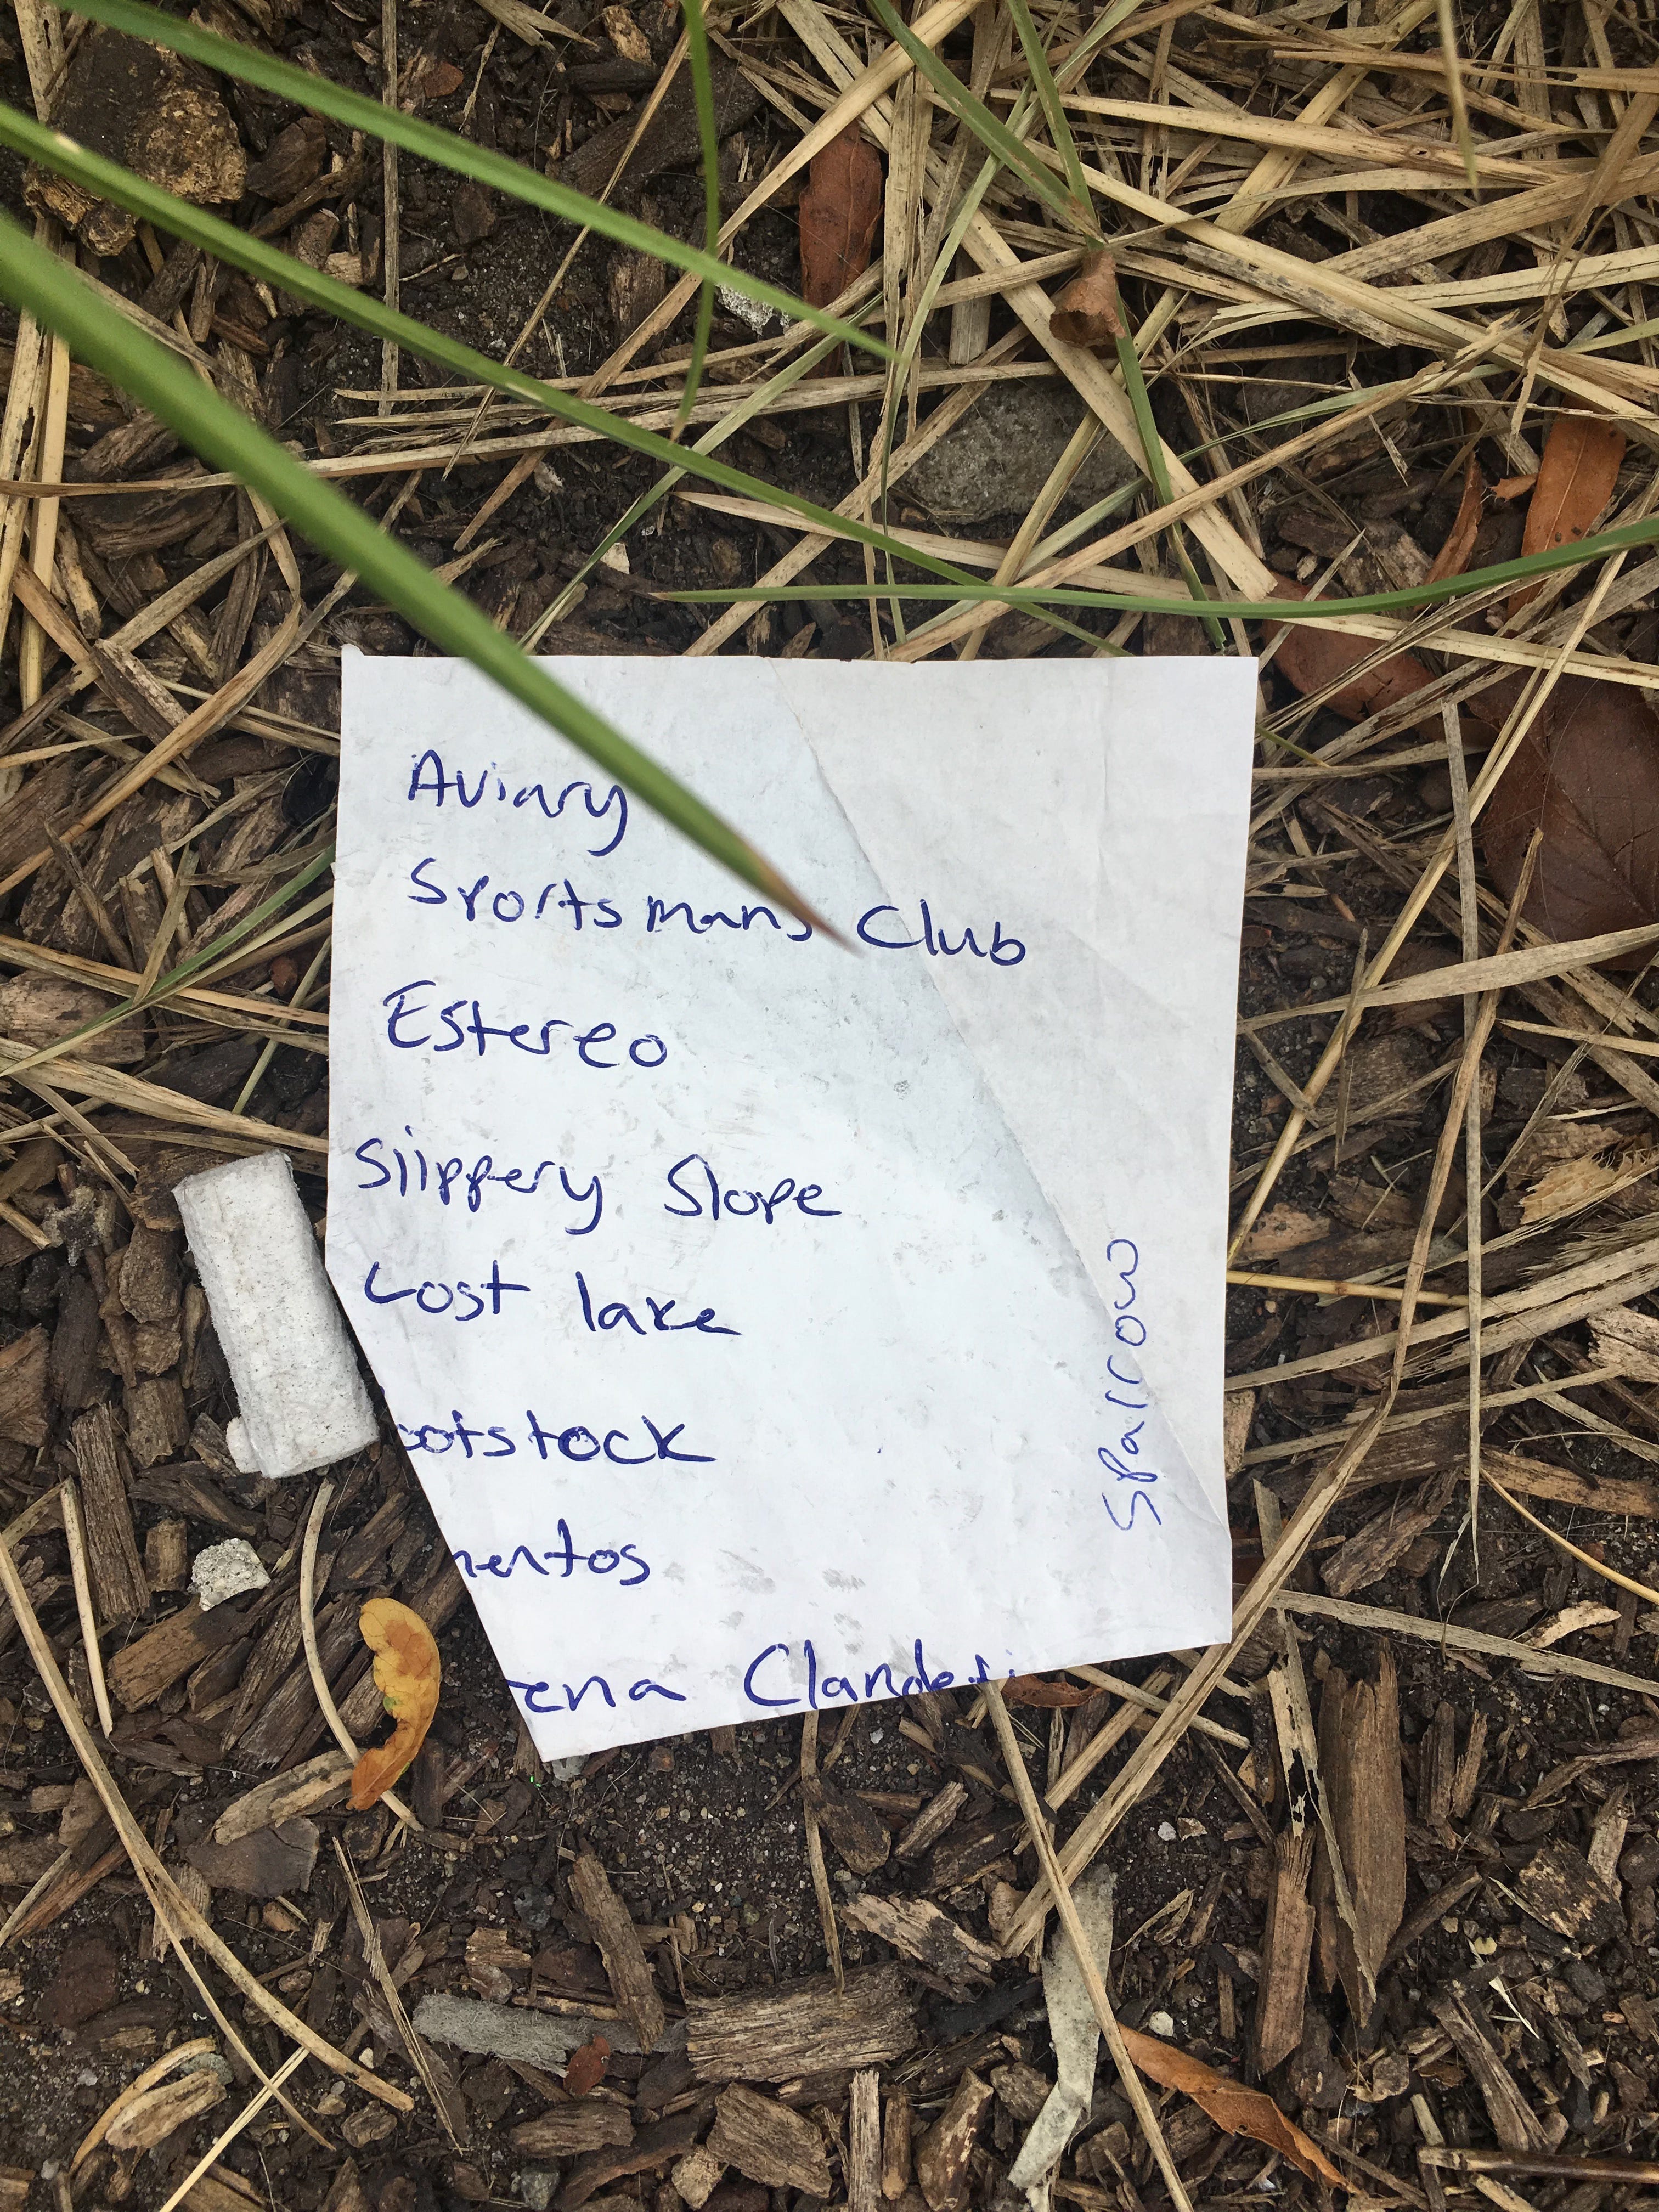 Aviary
Sportsmans Club
Estereo
Slippery Slope
Lost lake
ootstock
mentos
ena Clandesti
Sparrow